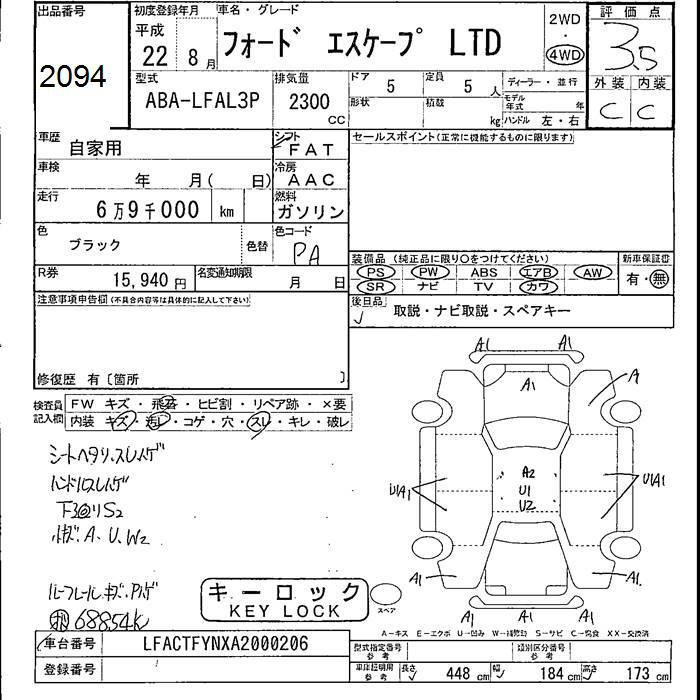 出品番号
2094
初度登録年月
平成
22 8 月
車名・グレード
フォード エスケープ LTD
2WD
・
4WD
評価点
3.5
外装 内装
C C
型式
ABA-LFAL3P
排気量
2300
CC
ドア
5
定員
5 人
ディーラー・並行
形状
積載
kg
モデル年式 年
ハンドル 左・右
車歴
自家用
シフト
FAT
車検
年 月( 日)
冷房
AAC
走行
6万9千000 km
燃料
ガソリン
色
ブラック
色替
色コード
PA
R券
15,940 円
名変通知期限
月 日
セールスポイント(正常に機能するものに限ります)
装備品 (純正品に限り○をつけてください)
PS PW ABS エアB AW
SR ナビ TV カワ
新車保証書
有・無
後日品
取説・ナビ取説・スペアキー
注意事項申告欄(不具合内容等は具体的に記入して下さい)
修復歴 有〔箇所 〕
検査員記入欄
FW キズ・飛石・ヒビ割・リペア跡・×要
内装 キズ・汚レ・コゲ・穴・スレ・キレ・破レ
シートヘタリ、スレ
ハンドルスレ
S2
A、U、W2
ルーフレールキズ、
68854K
キーロック
KEY LOCK
スペア
A1 A1
A1
A
U1A1
A2
U1
U2
U1A1
A1
A1
A1 A1
A1
A-キズ E-エクボ U-凹み W-補修跡 S-サビ C-腐食 XX-交換済
車台番号
LFACTFYNXA2000206
登録番号
型式指定番号
参考
類別区分番号
参考
車庫証明用
参考
長さ 448 cm
幅 184 cm
高さ 173 cm